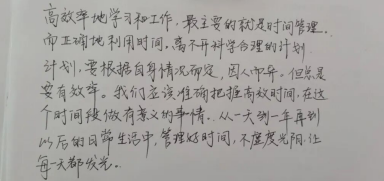 高效率地学习和工作，最主要的就是时间管理..
而正确地利用时间，离不开科学合理的计划
计划，要根据自身情况而定，因人而异。但总是
要有效率。我们应该准确把握高效时间，在这
个时间段做有意义的事情．从一天到一年再到
以后的日常生活中，管理好时间，不虚度光阴，让
每一天都发光。